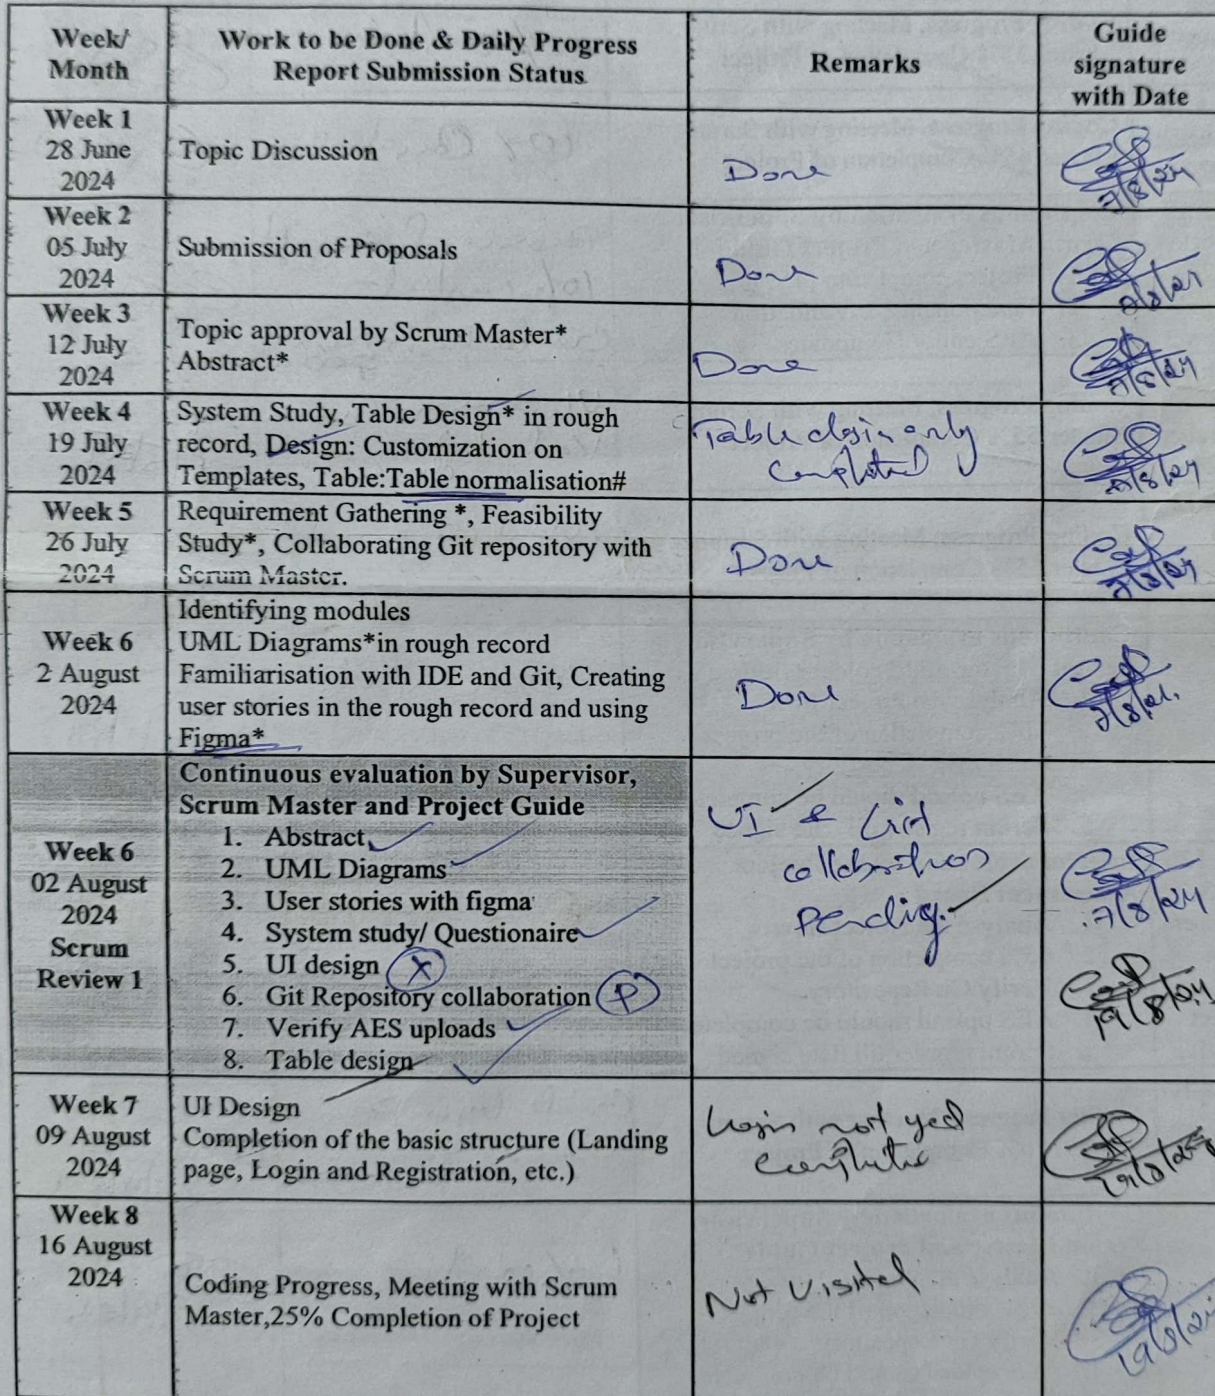 Week/
Month
Work to be Done & Daily Progress
Report Submission Status
Remarks
Guide
signature
with Date
Week 1
28 June
2024
Topic Discussion
Done
7/8/24
Week 2
05 July
2024
Submission of Proposals
Done
Week 3
12 July
2024
Topic approval by Scrum Master*
Abstract*
Done
7/8/24
Week 4
19 July
2024
System Study, Table Design* in rough
record, Design: Customization on
Templates, Table:Table normalisation#
Table desin only
completed
7/8/24
Week 5
26 July
2024
Requirement Gathering *, Feasibility
Study*, Collaborating Git repository with
Scrum Master.
Done
7/8/24
Week 6
2 August
2024
Identifying modules
UML Diagrams*in rough record
Familiarisation with IDE and Git, Creating
user stories in the rough record and using
Figma*
Done
7/8/24.
Week 6
02 August
2024
Scrum
Review 1
Continuous evaluation by Supervisor,
Scrum Master and Project Guide
1. Abstract
2. UML Diagrams
3. User stories with figma
4. System study/ Questionaire
5. UI design X
6. Git Repository collaboration P
7. Verify AES uploads
8. Table design
UI & Git
collaborations
Pending.
7/8/24
19/8/24
Week 7
09 August
2024
UI Design
Completion of the basic structure (Landing
page, Login and Registration, etc.)
Login not yet
completed
19/8/24
Week 8
16 August
2024
Coding Progress, Meeting with Scrum
Master,25% Completion of Project
Not Visited
19/8/24